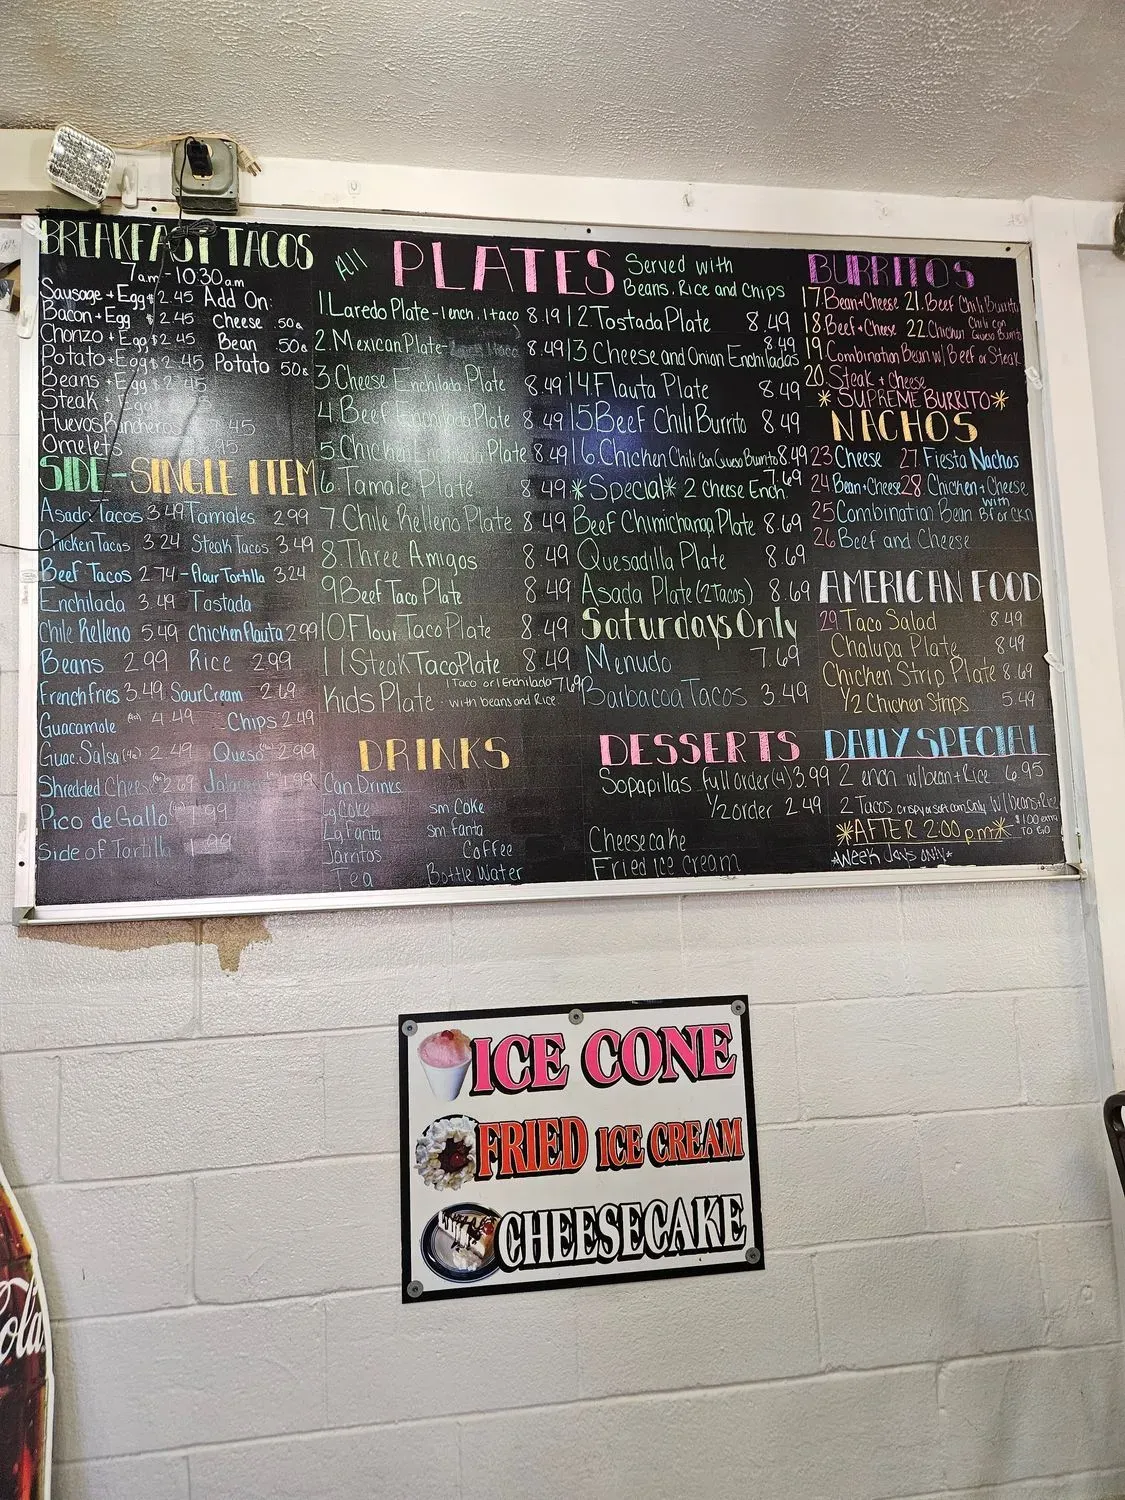 BREAKFAST TACOS
7am-10:30am
Sausage + Egg $2.45 Add On:
Bacon + Egg $2.45 Cheese .50¢
Chorizo + Egg $2.45 Bean .50¢
Potato + Egg $2.45 Potato 50¢
Beans + Egg $2.45
Steak + Egg
Huevos Rancheros
Omelets
SIDE-SINGLE ITEM
Asada Tacos 3.49 Tamales 2.99
Chicken Tacos 3.24 Steak Tacos 3.49
Beef Tacos 2.74 - flour Tortilla 3.24
Enchilada 3.49 Tostada
Chile Relleno 5.49 Chicken flauta 2.99
Beans 2.99 Rice 2.99
French fries 3.49 Sour Cream 2.69
Guacamole 4.49 Chips 2.49
Guac. Salsa (4oz) 2.49 Queso 2.99
Shredded Cheese 2.69 1.99
Pico de Gallo 1.99
Side of Tortilla 1.99
All PLATES Served with
Beans, Rice and Chips
1. Laredo Plate - 1 ench. 1 taco 8.19
2. Mexican Plate - 8.49
3 Cheese Enchilada Plate 8.49
4 Beef Enchilada Plate 8.49
5. Chicken Enchilada Plate 8.49
6. Tamale Plate 8.49
7. Chile Relleno Plate 8.49
8. Three Amigos 8.49
9 Beef Taco Plate 8.49
10. Flour Taco Plate 8.49
11 Steak Taco Plate 8.49
Kids Plate 1 Taco or 1 Enchilado 7.69
with beans and Rice
12. Tostada Plate 8.49
13 Cheese and Onion Enchiladas 8.49
14 Flauta Plate 8.49
15 Beef Chili Burrito 8.49
16. Chicken Chili Con Queso Burrito 8.49
*Special* 2 cheese Ench. 7.69
Beef Chimichanga Plate 8.69
Quesadilla Plate 8.69
Asada Plate (2 Tacos) 8.69
Saturdays Only
Menudo 7.69
Barbacoa Tacos 3.49
DRINKS
Can Drinks
Lg Coke sm Coke
Lg Fanta sm Fanta
Jarritos Coffee
Tea Bottle Water
DESSERTS
Sopapillas full order (4) 3.99
1/2 order 2.49
Cheesecake
Fried Ice Cream
BURRITOS
17. Bean + Cheese 21. Beef Chili Burrito
18. Beef + Cheese 22. Chicken Chili Con Queso Burrito
19 Combination Bean w/ Beef or Steak
20. Steak + Cheese
*SUPREME BURRITO*
NACHOS
23 Cheese 27. Fiesta Nachos
24 Bean + Cheese 28. Chicken + Cheese
25 Combination Bean with BF or CKN
26 Beef and Cheese
AMERICAN FOOD
29. Taco Salad 8.49
Chalupa Plate 8.49
Chicken Strip Plate 8.69
1/2 Chicken Strips 5.49
DAILY SPECIAL
2 ench w/ bean + Rice 6.95
2 Tacos crispy or soft corn Only w/ Beans + Rice
*AFTER 2:00 p.m* $1.00 extra TO GO
*Week days ONLY*
ICE CONE
FRIED ICE CREAM
CHEESECAKE
Cola